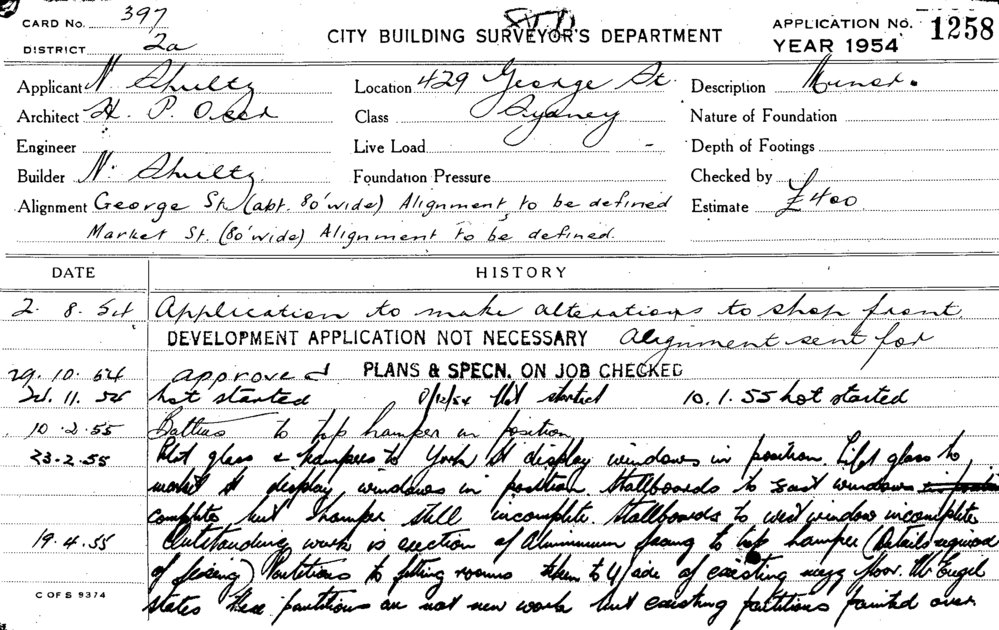 CARD No. 397
DISTRICT 2a
CITY BUILDING SURVEYOR'S DEPARTMENT
APPLICATION No. 1258
YEAR 1954
Applicant N. Shultz Location 429 George St. Description Minor.
Architect H. P. Oser Class Sydney Nature of Foundation
Engineer Live Load - Depth of Footings
Builder N. Shultz Foundation Pressure Checked by
Alignment George St. (abt. 80' wide) Alignment to be defined Estimate £400
Market St. (80' wide) Alignment to be defined.
DATE HISTORY
2. 8. 54 Application to make alterations to shop front.
DEVELOPMENT APPLICATION NOT NECESSARY Alignment sent for
29. 10. 54 approved PLANS & SPECN. ON JOB CHECKED
11. not started 8/12/54 Not started 10. 1. 55 not started
10. 2. 55 to top hamper in position
23. 2. 55 glass & hampers to York St display windows in position. glass to
market St display windows in position. Stallboards to East windows
complete but hamper still incomplete. Stallboards to west window incomplete
19. 4. 55 Outstanding work is erection of Aluminium facing to top hamper (Details required
of fixing) Partitions to fitting rooms to side of existing mezz floor. Mr
states these partitions are not new work but existing partitions painted over.
C OF S 9374